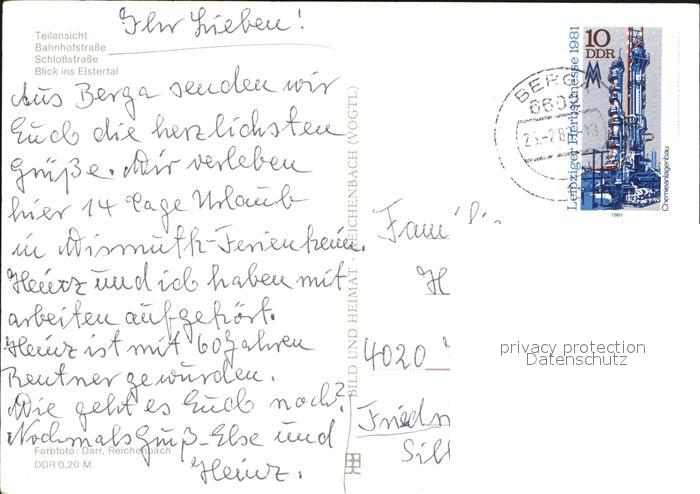 Ihr Lieben!
Teilansicht
Bahnhofstraße
Schloßstraße
Blick ins Elstertal
Aus Berga senden wir
Euch die herzlichsten
Grüße. Wir verleben
hier 14 Tage Urlaub
in Wismuth-Ferienheim.
Heinz und ich haben mit
arbeiten aufgehört.
Heinz ist mit 60 Jahren
Rentner geworden.
Wie geht es Euch noch?
Nochmals Gruß Else und
Heinz.
Farbfoto: Darr, Reichenbach
DDR 0,20 M
BILD UND HEIMAT · REICHENBACH (VOGTL)
Leipziger Herbstmesse 1981
10
DDR
MM
Chemieanlagenbau
1981
BERGA
Fami
H
4020
Friedr
Sil
privacy protection
Datenschutz